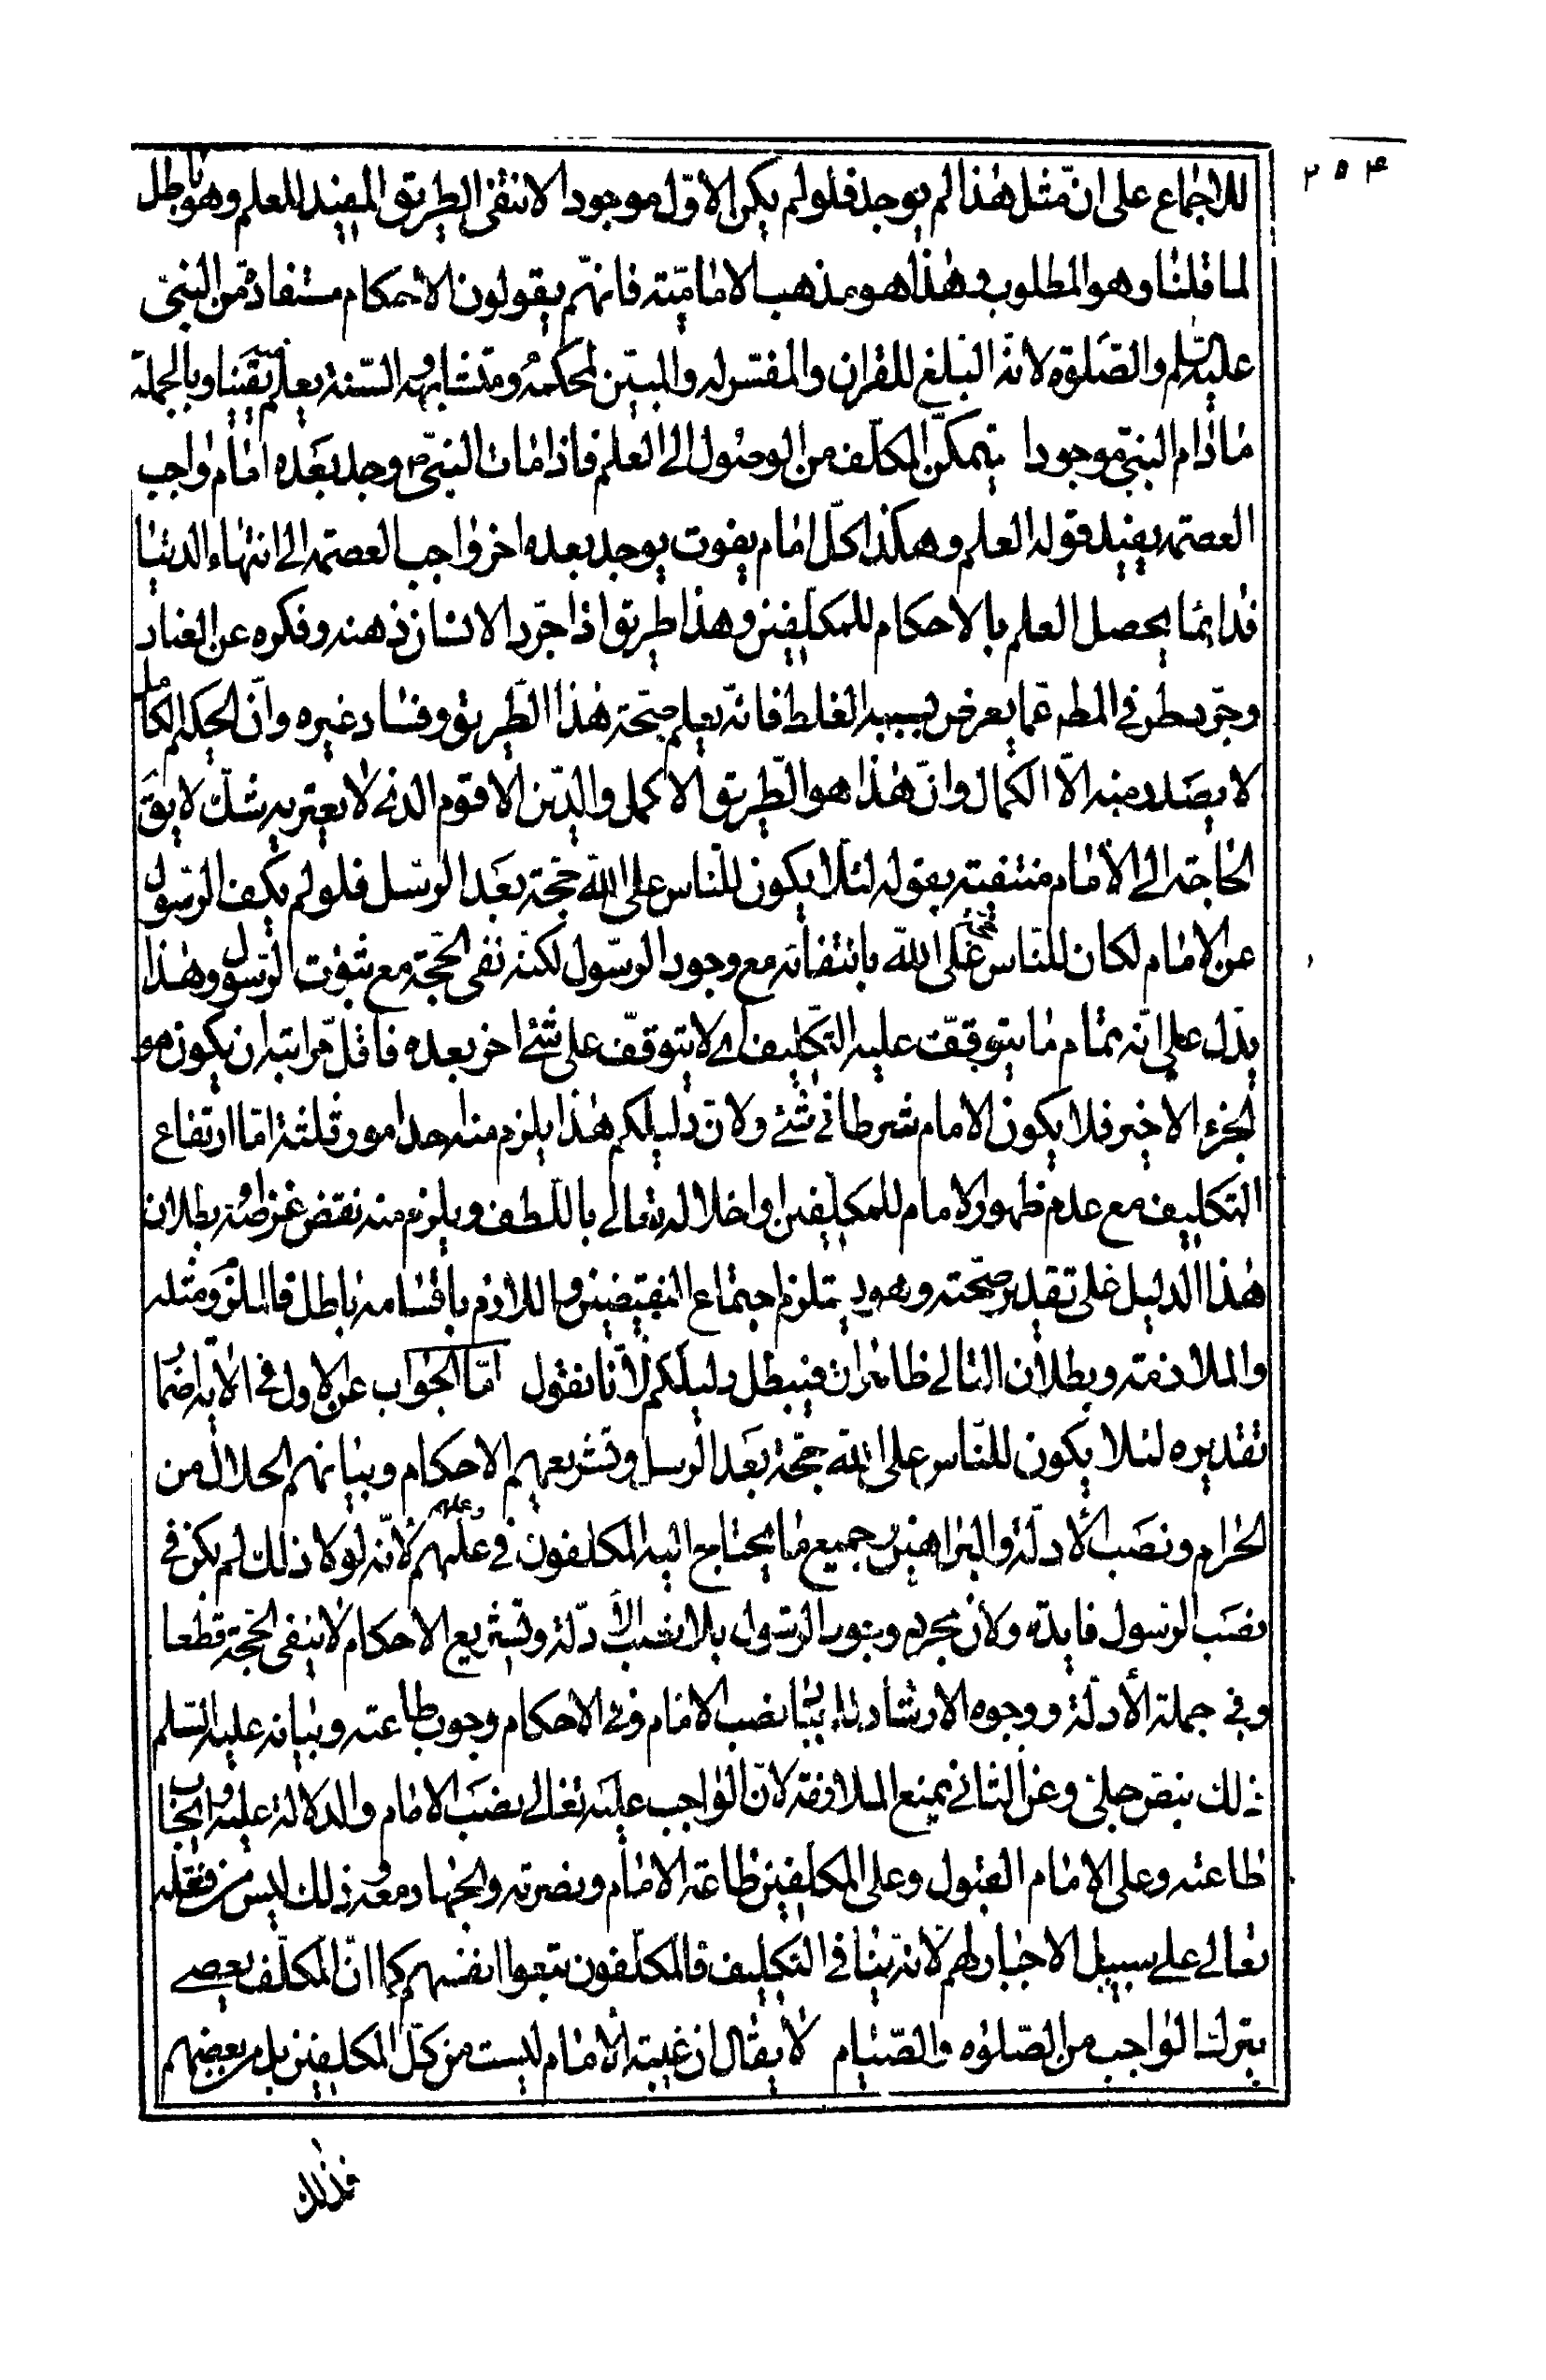 ٢٥٤
للاجماع على انّ مثل هذا لم يوجد فلو لم يكن الاوّل موجودا لانتفى الطريق المفيد للعلم وهو باطل
لما قلنا وهو المطلوب وهذا هو مذهب الاماميّة فانهم يقولون الاحكام مستفادة من النبىّ
عليه السلم والصّلوة لانّه المبلغ للقران والمفسّر له والمبيّن لمحكمه ومتشابهه والسّنة يعلم يقينا وبالجملة
مادام النبىّ موجودا يتمكّن المكلّف من الوصول الى العلم فاذا مات النبىّ ص وجد بعده امام واجب
العصمة يفيد قوله العلم وهكذا كلّ امام يفوت يوجد بعده اخر واجب العصمة الى انتهاء الدنيا
فدائما يحصل العلم بالاحكام للمكلّفين وهذا طريق اذا جرّد الانسان ذهنه وفكره عن العناد
وجرّد نظره فى المط عمّا يعرض بسببه الغلط فانّه يعلم صحّة هذا الطّريق وفساد غيره وانّ الحكيم الكامل
لا يصدر منه الّا الكمال وانّ هذا هو الطّريق الاكمل والدّين الاقوم الذى لا يعتريه شكّ لا يق
الحاجة الى الامام منتفية بقوله لئلّا يكون للنّاس على اللّه حجّة بعد الرّسل فلو لم يكف الرّسول
عن الامام لكان للنّاس حجّة على اللّه بانتفائه مع وجود الرّسول لكنّه نفى الحجّة مع ثبوت الرّسول وهذا
يدّل على انّه تمام ما يتوقّف عليه التّكليف اى لا يتوقّف على شئ اخر بعده فاقلّ مراتبه ان يكون هو
الجزء الاخير فلا يكون الامام شرطا فى شئ ولانّ دليلكم هذا يلزم منه احد امور ثلثة امّا ارتفاع
التكليف مع عدم ظهور الامام للمكلّفين او اخلاله تعالى باللّطف ويلزم منه نقض غرضه او بطلان
هذا الدليل على تقدير صحّته وهو يستلزم اجتماع النقيضين واللازم باقسامه باطل فالملزوم مثله
والملازمة وبطلان التالى ظاهران فيبطل دليلكم لأنّا نقول امّا الجواب عن الاول فى الآية اضمار
تقديره لئلا يكون للنّاس على اللّه حجّة بعد الرسل وتشريعهم الاحكام وبيانهم الحلال من
الحرام ونصب الأدلّة والبراهين وجميع ما يحتاج اليه المكلفون فى علمهم وعملهم لأنّه لولا ذلك لم يكن فى
نصب الرّسول فايدة ولأنّ مجرّد وجود الرّسول بلا نصب الأدلّة وتشريع الاحكام لا ينفى الحجّة قطعا
وفى جملة الأدلّة ووجوه الارشاد نصب الامام وفى الاحكام وجوب طاعته وبيانه عليه السّلم
ذلك بنصّ جلىّ وعن الثانى بمنع الملازمة لانّ الواجب عليه تعالى نصب الامام والدلالة عليه وايجاب
طاعته وعلى الامام القبول وعلى المكلّفين طاعة الامام ونصرته والجهاد معه وذلك ليس من فعله
تعالى على سبيل الاجبار لهم لانّه ينافى التكليف فالمكلّفون منعوا انفسهم كما انّ المكلّف يعصى
بترك الواجب من الصّلوه والصّيام لا يقال ان غيبة الامام ليست من كلّ المكلفين بل من بعضهم
فذلك